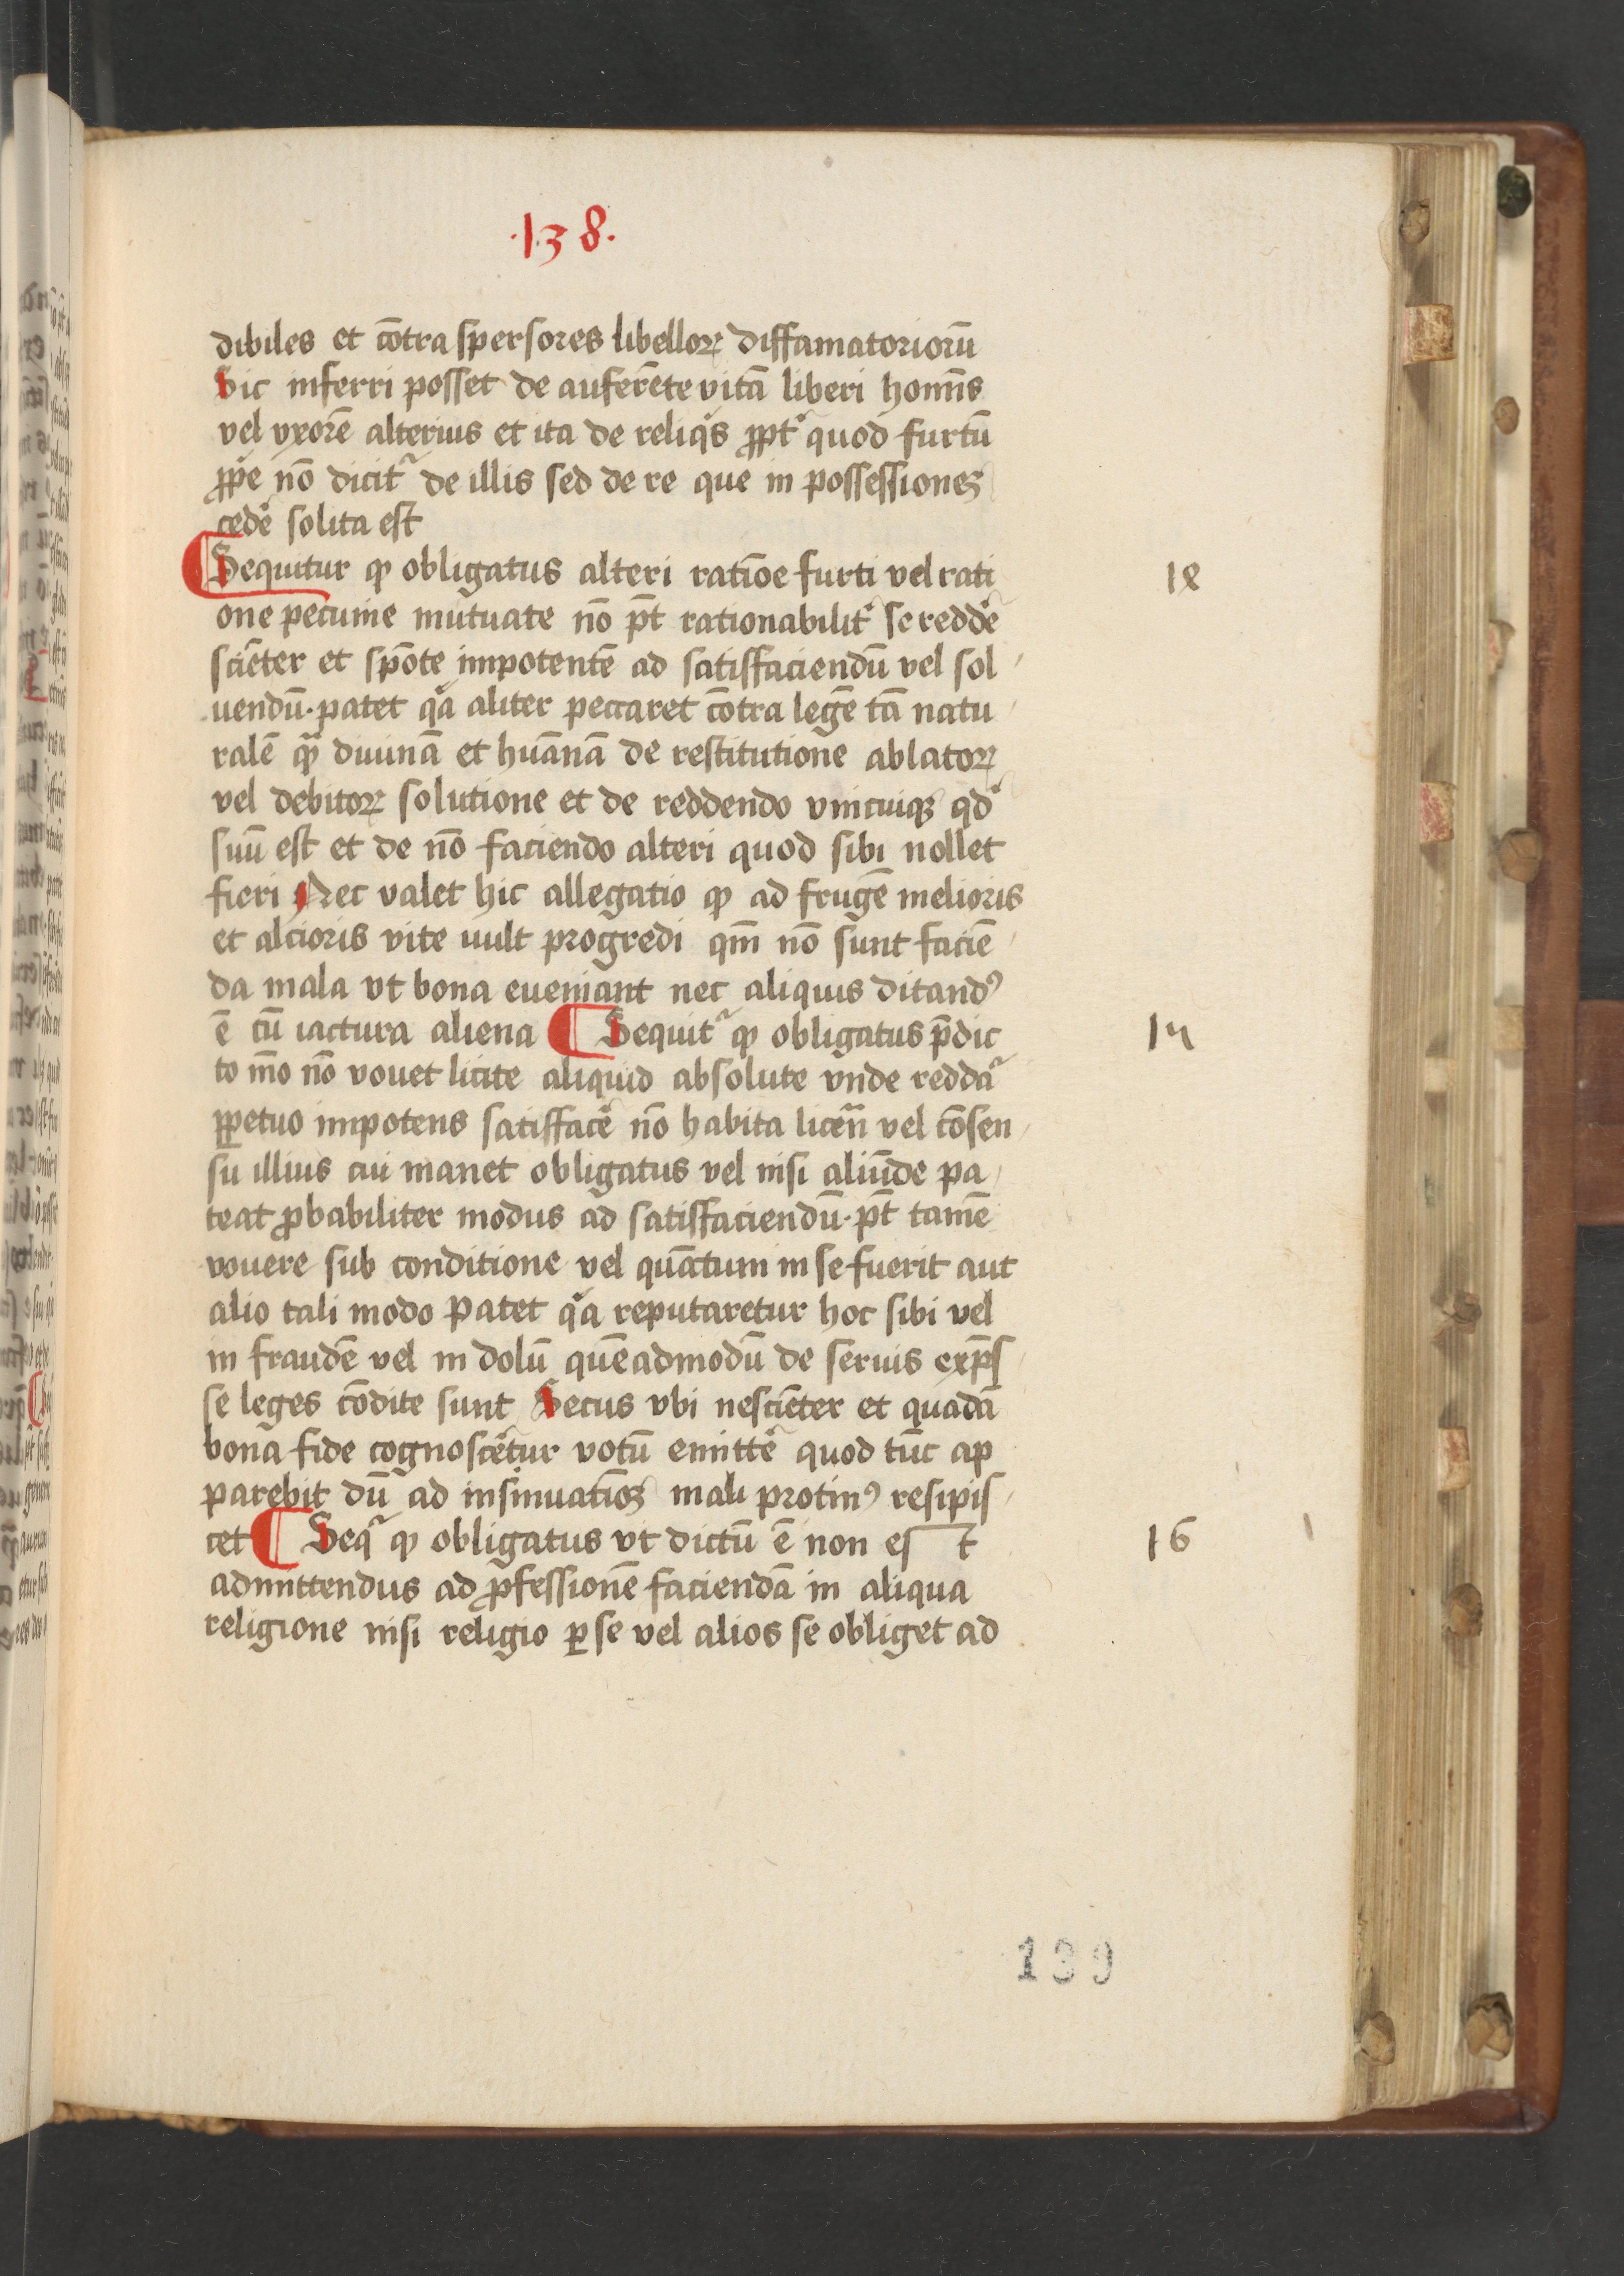 .138.
dibiles et cōtra spersores libelloꝝ diffamatoriorū
Sic inferri posset de auferēte vitā liberi homīs
vel vxorē alterius et ita de reliqͥs ꝓpt᷑ quod furtū
ꝓpͥe nō dicit᷑ de illis sed de re que in possessioneꝫ
cede᷑ solita est
¶ Sequitur ꝙ obligatus alteri ratiōe furti vel rati
one pecunie mutuate nō pt̄ rationabilit᷑ se redde᷑
sciēter et spōte impotentē ad satisfaciendū vel sol
uendū· patet qͥa aliter peccaret cōtra legē tā natu
ralē qᷓ diuinā et huānā de restitutione ablatoꝝ
vel debitoꝝ solutione et de reddendo vnicuiqꝫ qd᷑
suū est et de nō faciendo alteri quod sibi nollet
fieri Nec valet hic allegatio ꝙ ad frugē melioris
et alcioris vite vult progredi qm̄ nō sunt faciē
da mala vt bona eueniant nec aliquis ditandꝰ
ē cū iactura aliena ¶ Sequit᷑ ꝙ obligatus p̄dic
to mō nō vouet licite aliquid absolute vnde redda᷑
ꝑpetuo impotens satisface᷑ nō habita licēa vel cōsen
su illius cui manet obligatus vel nisi aliūde pa
teat ꝓbabiliter modus ad satisfaciendū· pt̄ tamē
vouere sub conditione vel quātum in se fuerit aut
alio tali modo Patet qͥa reputaretur hoc sibi vel
in fraudē vel in dolū quēadmodū de seruis exp̄s
se leges cōdite sunt Secus vbi nesciēter et quadā
bona fide cognoscēt᷑ur votū emitte᷑ quod tūc ap
parebit dū ad insinuatiōꝫ mali protinꝰ resipis
cet ¶ Seq᷑ ꝙ obligatus vt dictū ē non es t
admittendus ad ꝓfessionē faciendā in aliqua
religione nisi religio ꝑ se vel alios se obliget ad
1ꝝ
14
16
139